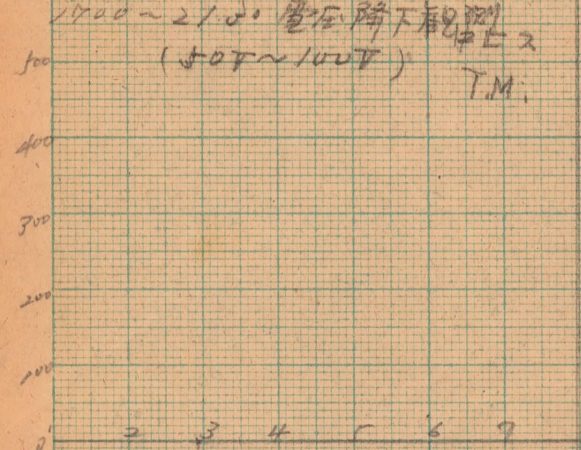 1700~21.30 電圧降下観測
中ヒス
(50V~100V)
T.M.
500
400
300
200
100
0
2 3 4 5 6 7